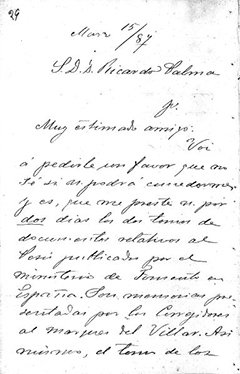 29
Marz 15/87
S. D. D. Ricardo Palma
Muy estimado amigo:
Voi
á pedirle un favor que no
sé si podrá concederme,
y es, que me preste n. por
dos dias los dos tomos de
documentos relativos al
Perú publicados por el
ministerio de Fomento en
España. Son memorias pre
sentadas por los Corregidores
al marques del Villar. Asi
mismo, el tomo de los